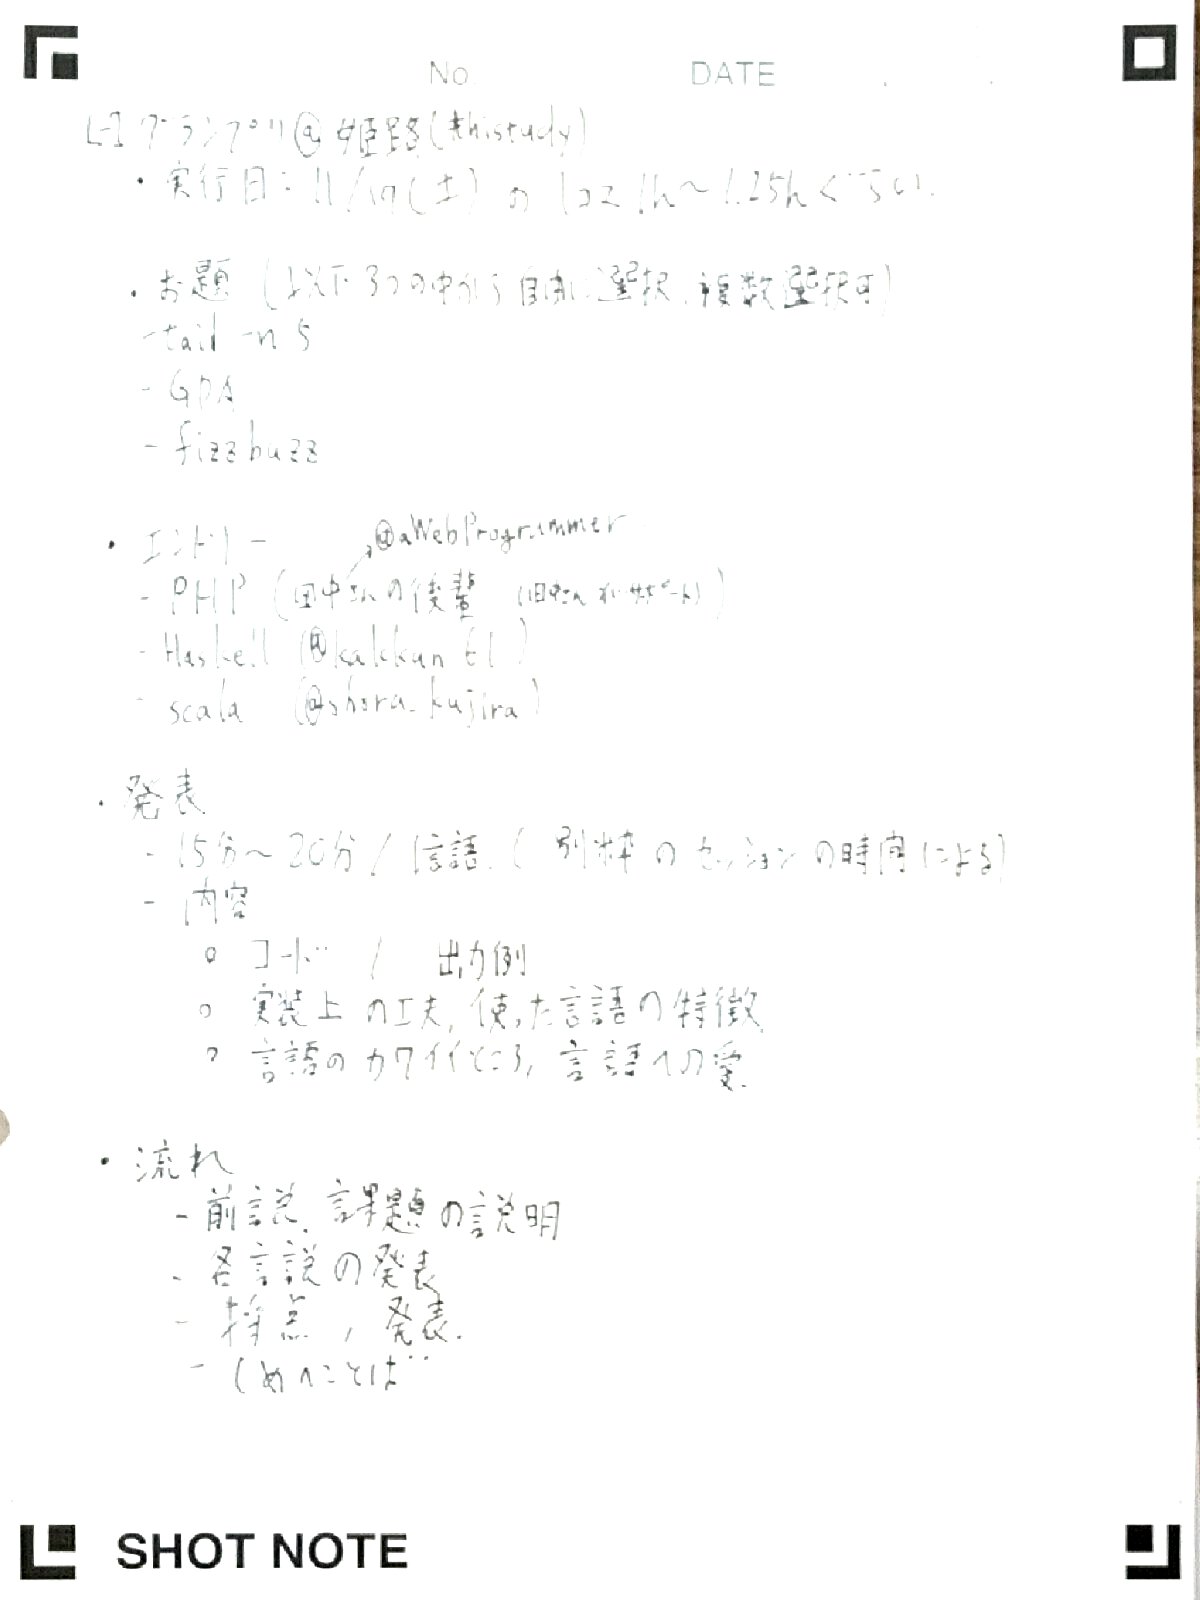 No DATE
L-1グランプリ@姫路(#histudy)
・実行日: 11/19(土) の 1コマ 1h〜1.25hくらい.
・お題 (以下3つの中から自由に選択, 複数選択可)
- tail -n 5
- GPA
- fizzbuzz
・エントリー
@aWebProgrammer
- PHP (田中さんの後輩 (田中さん サポート))
- Haskell (@kakkun61)
- scala (@shora_kujira)
・発表
- 15分〜20分/1言語. ( 別枠のセッションの時間による)
- 内容
○ コード / 出力例
○ 実装上の工夫, 使った言語の特徴
○ 言語のカワイイところ, 言語への愛.
・流れ
- 前説, 課題の説明
- 各言説の発表
- 採点, 発表.
- しめへことば
SHOT NOTE